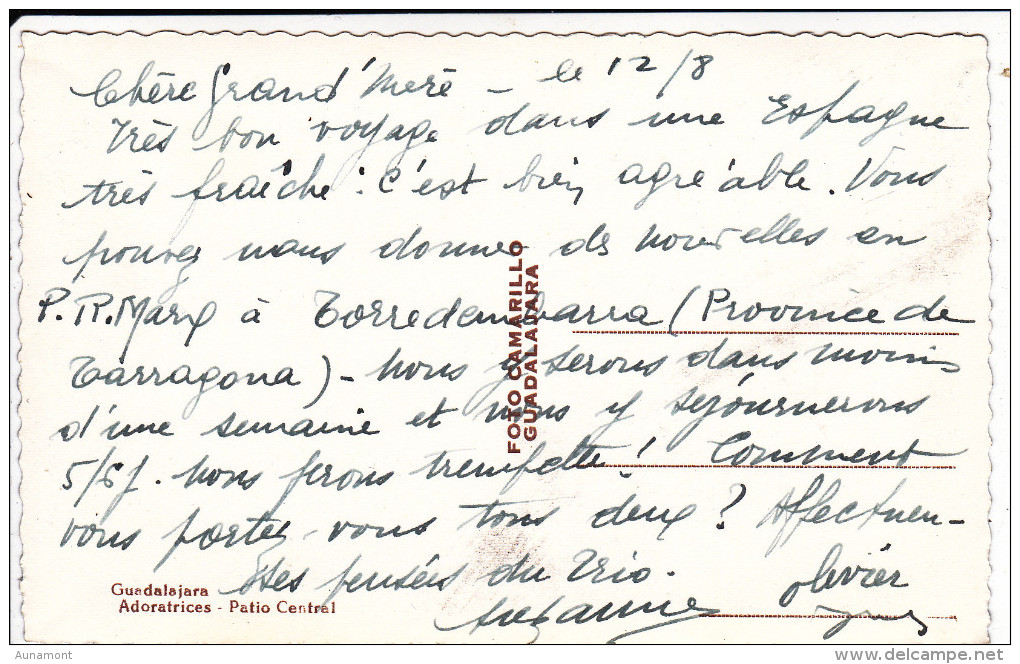 Chère Grand'Mère - le 12/8
Très bon voyage dans une Espagne
très fraîche : c'est bien agréable. Vous
pouvez nous donner de nouvelles en
P.R. à Torredembarra (Province de
Tarragona) - nous y serons dans moins
d'une semaine et nous y séjournerons
5/6 j. nous ferons trempette ! Comment
vous portez-vous tous deux ? Affectueu-
ses pensées du trio.
Olivier
Suzanne
FOTO CAMARILLO
GUADALAJARA
Guadalajara
Adoratrices - Patio Central
Aunamont
http://www.delcampe.net